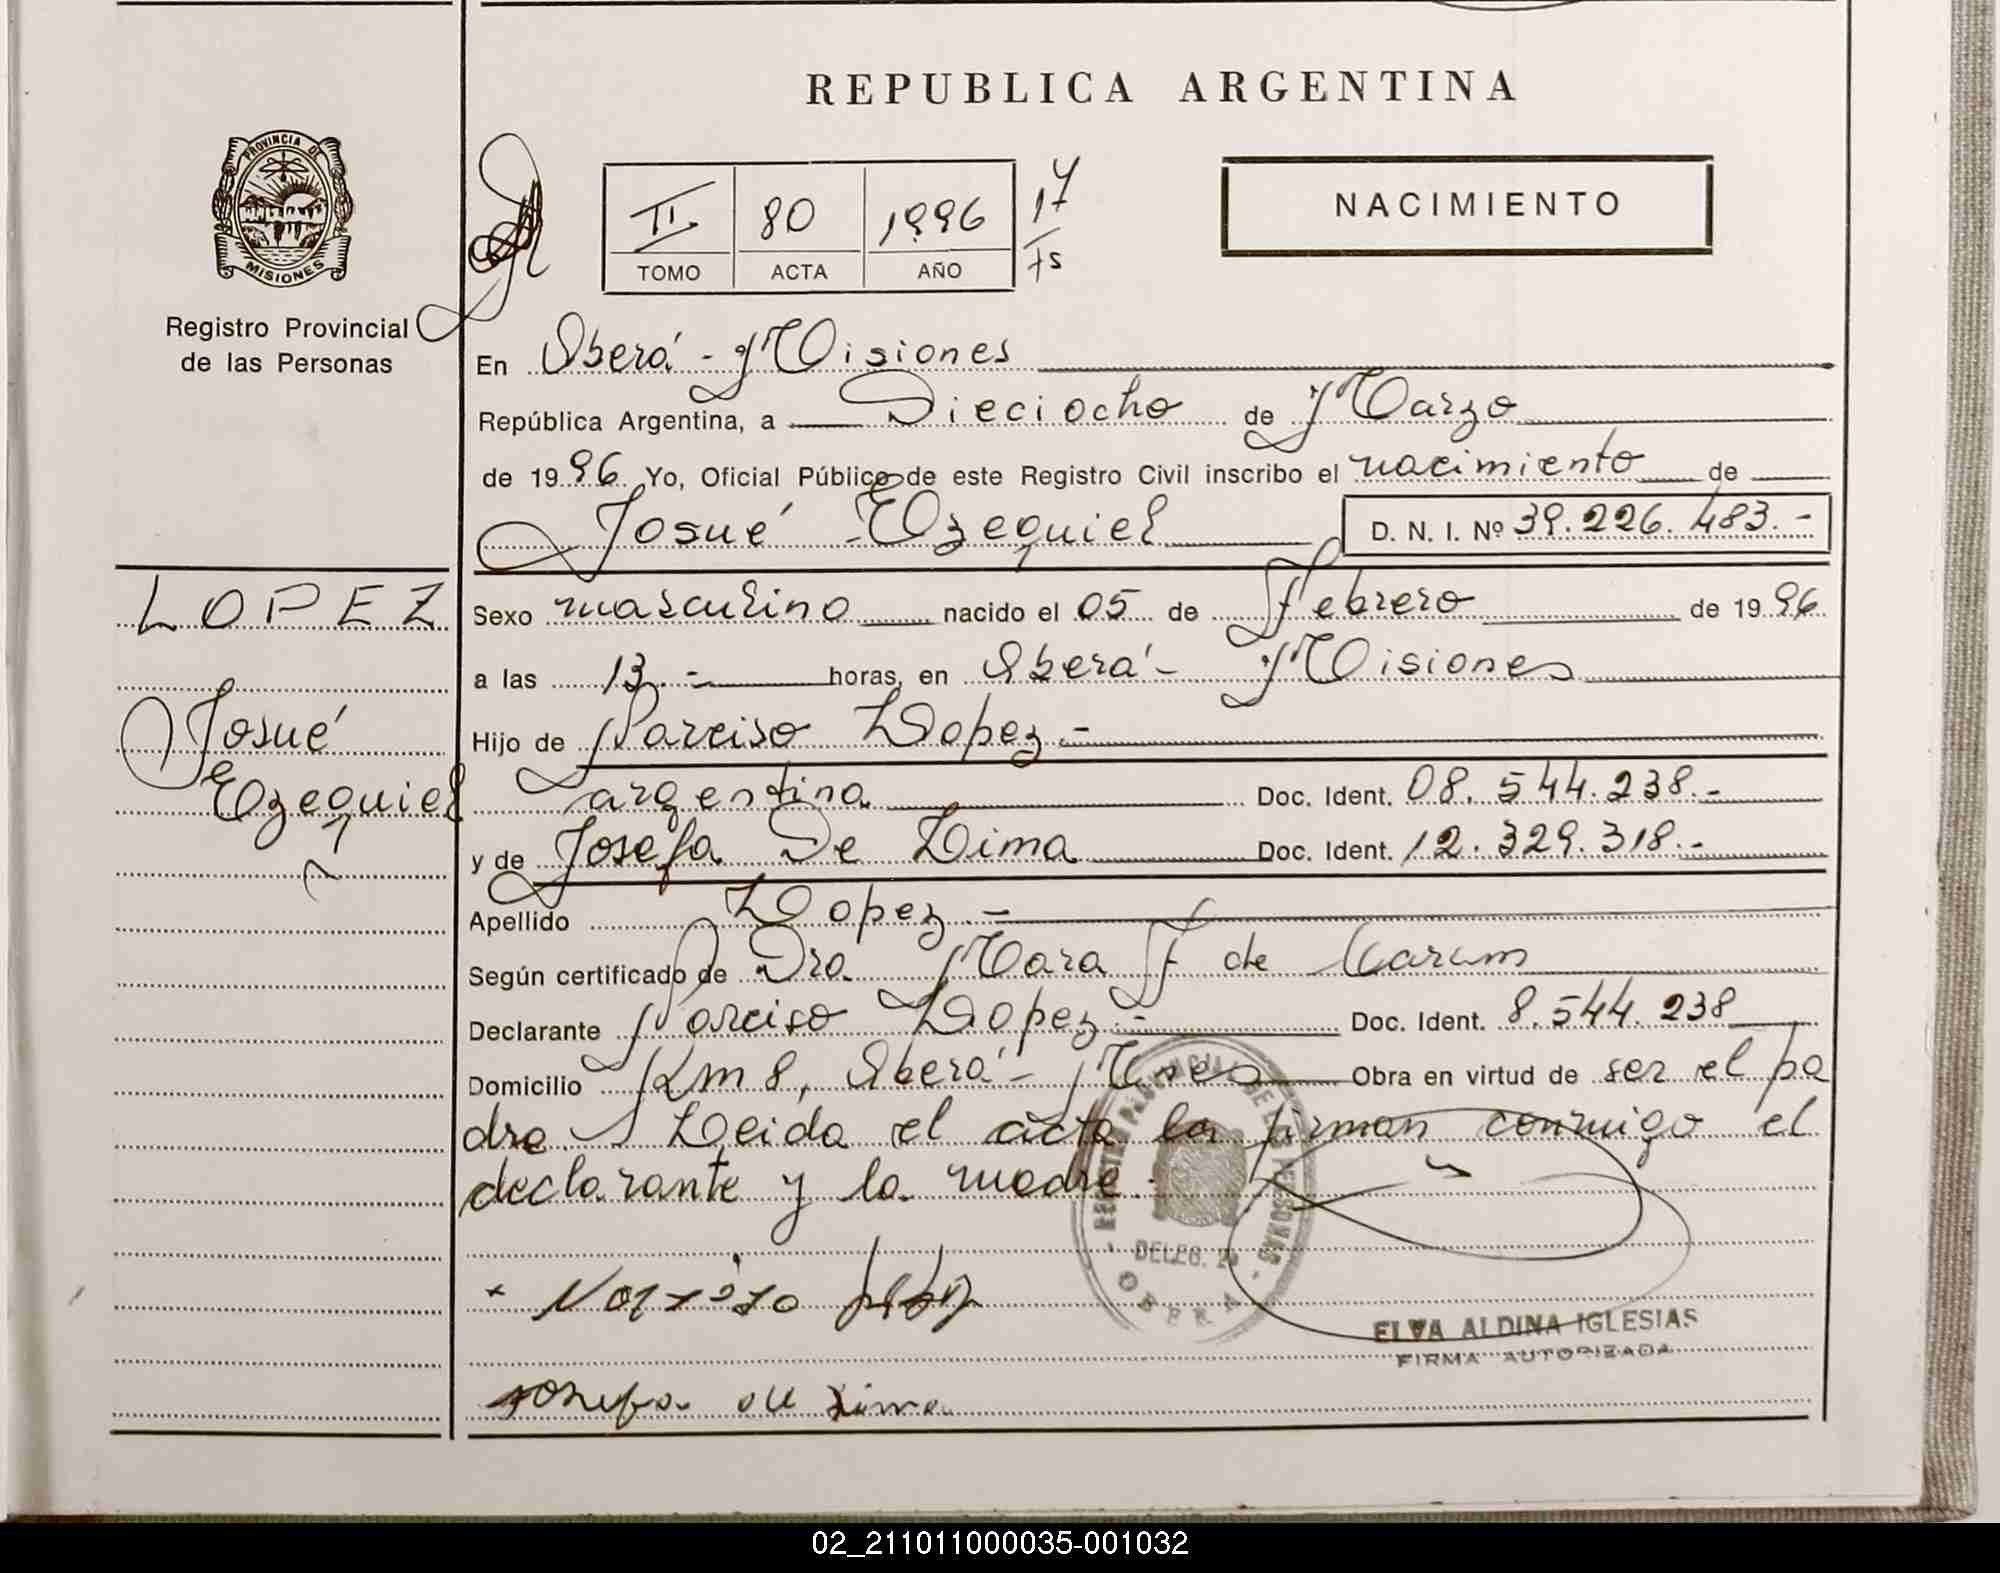 REPUBLICA ARGENTINA
PROVINCIA DE
MISIONES
Registro Provincial
de las Personas
II 80 1996 17
TOMO ACTA AÑO
NACIMIENTO
En Oberá - Misiones
República Argentina, a Dieciocho de Marzo
de 1996 Yo, Oficial Público de este Registro Civil inscribo el nacimiento de
Josué Ezequiel D. N. I. Nº 39.226.483.-
LOPEZ
Josué
Ezequiel
Sexo masculino nacido el 05 de Febrero de 1996
a las 13.- horas, en Oberá - Misiones
Hijo de Narciso Lopez.-
argentina Doc. Ident. 08.544.238.-
y de Josefa De Lima Doc. Ident. 12.329.318.-
Apellido Lopez.-
Según certificado de Dra. Mara F de
Declarante Narciso Lopez.- Doc. Ident. 8.544.238
Domicilio Km 8, Oberá - Mnes Obra en virtud de ser el pa
dre Leida el acta la firman conmigo el
declarante y la madre.-
REGISTRO PROVINCIAL DE LAS PERSONAS
DELEG.
OBERA
Josefa de Lima
ELVA ALDINA IGLESIAS
FIRMA AUTORIZADA
02_211011000035-001032